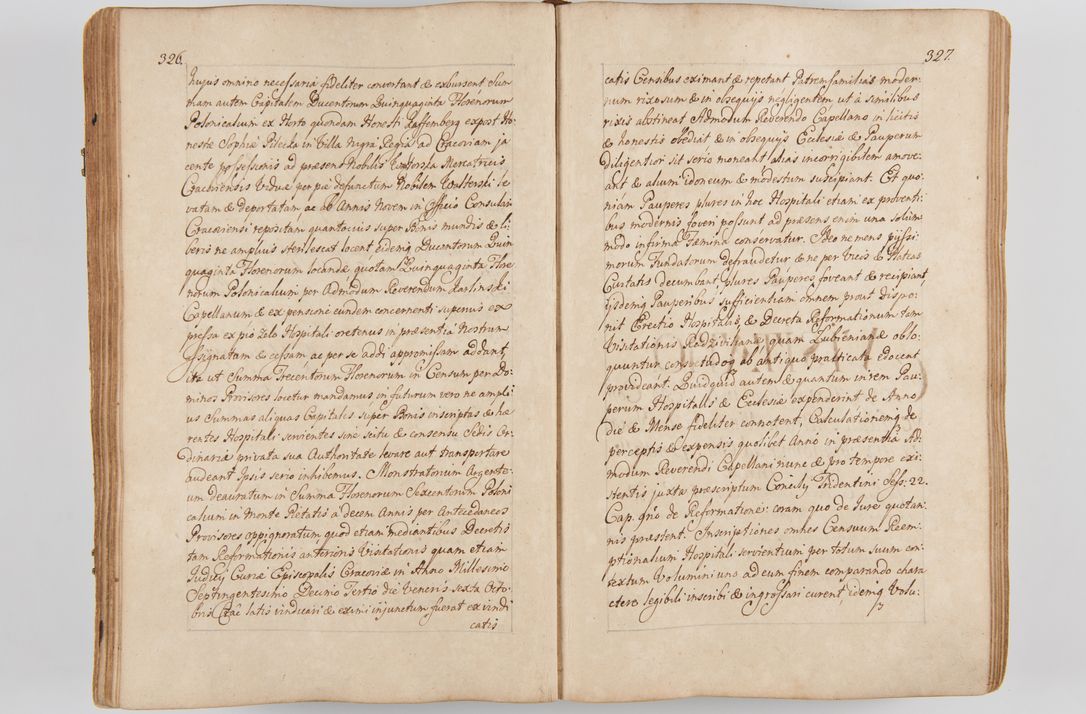 326.
hujus omnino necessaria fideliter convertant & exbursent Sum-
mam autem Capitalem Ducentorum Quinquaginta Florenorum
Polonicalium ex Horto quondam Honesti Kaffemberg expost Ho
nestæ Sophiæ Pilecka in Villa Nigra Regia ad Cracoviam ja
cente possessionis ad præsens Nobilis Walterska Mercatricis
Cracoviensis Viduæ per piè defunctum Nobilem Walterski le
vatam & deportatam ac ab Annis Novem in Officio Consulari
Cracoviensi repositam quantocius super Bonis mundis & li
beris ne amplius sterilescat locent eidemq Ducentorum Quin
quaginta Florenorum locandæ quotam Quinquaginta Flore
norum Polonicalium per Admodum Reverendum Karlinski
Capellanum & ex pensione eundem concernenti superius ex
pressa ex pio zelo Hospitali oretenus in præsentia Nostrum
assignatam & cessam ac per se addi appromissam addant,
ita ut Summa Trecentorum Florenorum in Censum per Do-
minos Provisores locetur mandamus in futurum vero ne ampli
us Summas aliquas Capitales super Bonis inscriptas & hæ
rentes Hospitali servientes sine scitu & consensu Sedis Or-
dinariæ privata sua Authoritate levare aut transportare
audeant Ipsis serio inhibemus. Monstratorium Argente-
um deauratum in Summa Florenorum Sexcentorum Poloni
calium in Monte Pietatis a decem Annis per Antecedaneos
Provisores oppignoratum quod etiam mediantibus Decretis
tam Reformationis anterioris Visitationis quam etiam
Judicij Curiæ Episcopalis Cracoviæ in Anno Millesimo
Septingentesimo Decimo Tertio die Veneris sexta Octo-
bris latis vindicari & eximi injunctum fuerat ex vindi
catis
327.
catis Censibus eximant & repetant Patremfamilias moder-
num rixosum & in obsequijs negligentem ut à similibus
rixis abstineat Admodum Reverendo Capellano in licitis
& honestis obediat & in obsequijs Ecclesiæ & Pauperum
diligentior sit serio moneant alias incorrigibilem amove-
ant & alium idoneum & modestum suscipiant. Et quo-
niam Pauperes plures in hoc Hospitali etiam ex proventi-
bus modernis foveri possunt ad præsens enim una solum
modo infirma Fæmina conservatur. Ideo ne mens pijssi-
morum Fundatorum defraudetur & ne per Vicos & Plateas
Civitatis decumbant plures Pauperes foveant & recipiant,
ijsdemq Pauperibus sufficientiam omnem prout dispo-
nit Erectio Hospitalis, & Decreta Reformationum tam
Visitationis Radziviliana quam Lubieniana & oblo-
quuntur consuetudoq ab antiquo practicata edocent
provideant. Quidquid autem & quantum in rem Pau-
perum Hospitalis & Ecclesiæ expenderint de Anno
die & Mense fideliter connotent, Calculationemq de
perceptis & expensis quolibet Anno in præsentia Ad-
modum Reverendi Capellani nunc & pro tempore exi-
stentis juxta præscriptum Concilij Tridentini Sess: 22.
Cap. 9no de Reformatione: coram quo de Jure quotan-
nis præstent. Inscriptiones omnes Censuum Reem-
ptionalium Hospitali servientium per totum suum con-
textum Volumini uno ad eum finem comparando chara
ctere legibili inscribi & ingrossari curent, eidemq Volu-